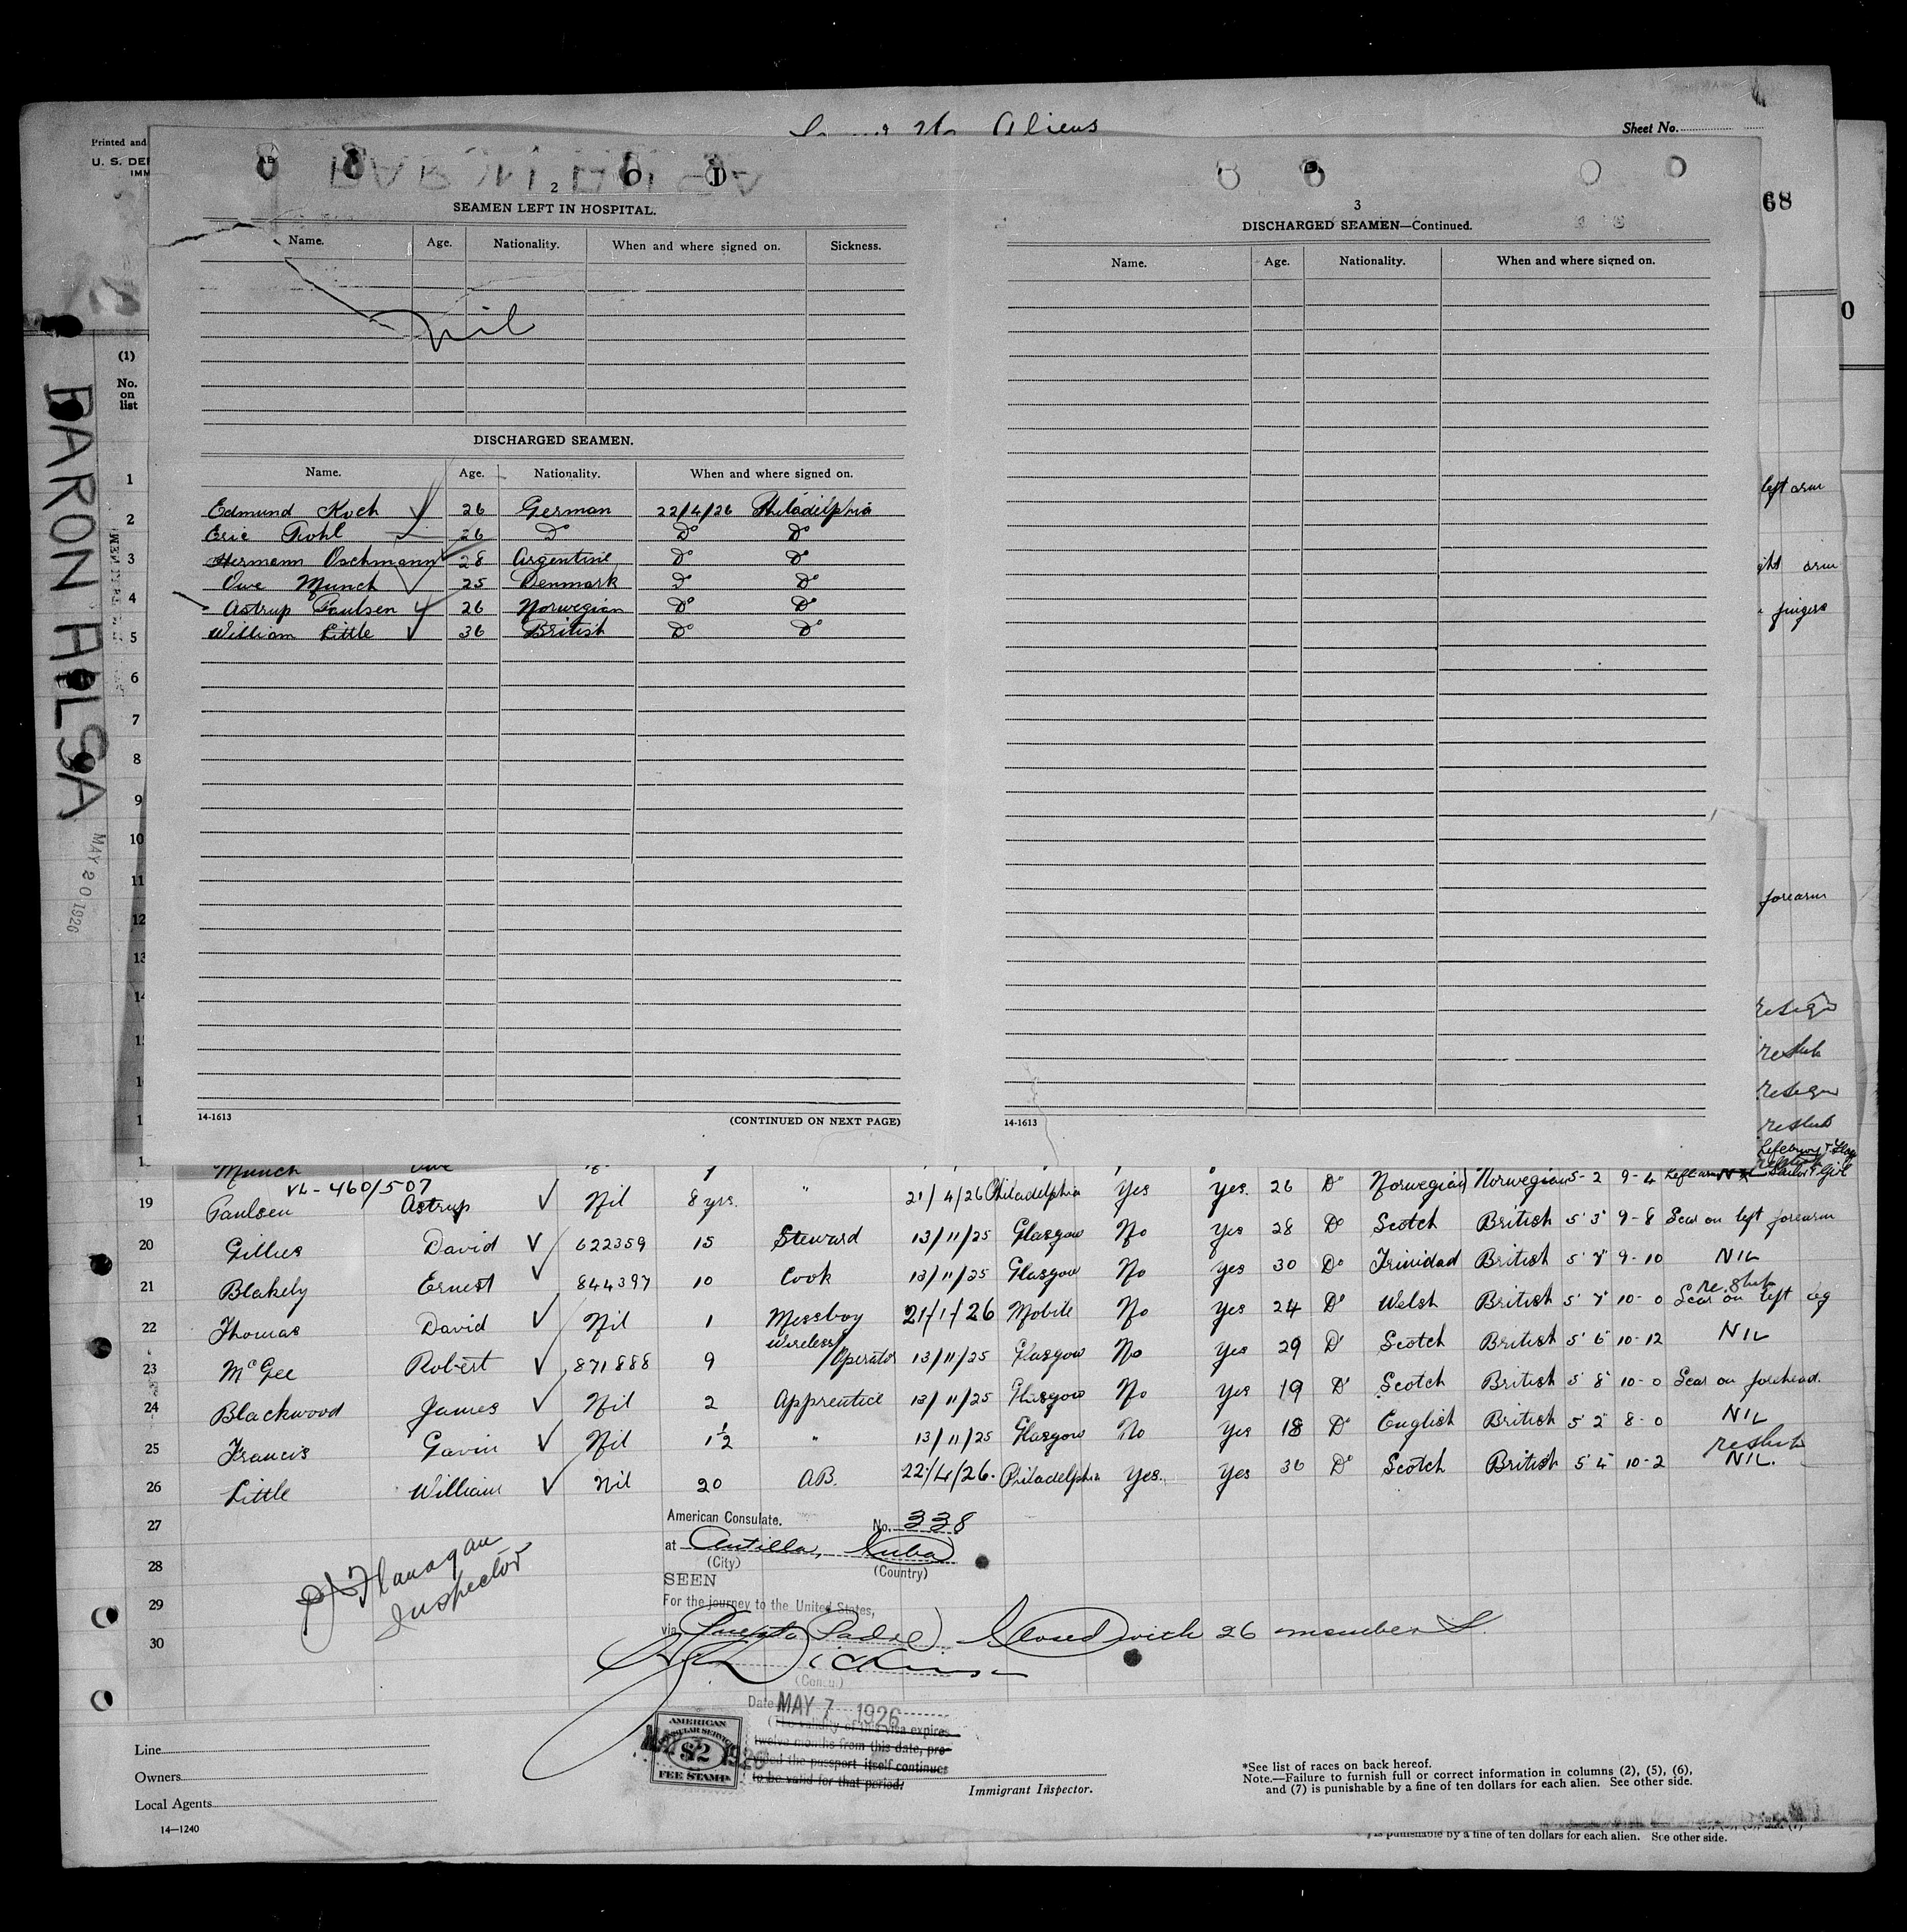 Aliens
Sheet No.
Printed and
U. S. DEP
IMM
68
0
2
SEAMEN LEFT IN HOSPITAL.
Name. Age. Nationality. When and where signed on. Sickness.
nil
DISCHARGED SEAMEN.
Name. Age. Nationality. When and where signed on.
Edmund Koch 26 German 22/4/26 Philadelphia
Eric Pohl 26 Do Do Do
Hermann Oachmann 28 Argentine Do Do
Owe Munch 25 Denmark Do Do
Astrup Paulsen 26 Norwegian Do Do
William Little 36 British Do Do
14-1613 (CONTINUED ON NEXT PAGE)
3
DISCHARGED SEAMEN—Continued.
Name. Age. Nationality. When and where signed on.
14-1613
(1)
No.
on
list
1
2
3
4
5
6
7
8
9
10
11
12
13
14
BARON AILSA
MAY 20 1926
left arm
arm
fingers
forearm
Munch Owe
VL-460/507
19 Paulsen Astrup Nil 8 yrs. " 21/4/26 Philadelphia Yes Yes. 26 Do Norwegian Norwegian 5-2 9-4
20 Gillies David 622359 15 Steward 13/11/25 Glasgow No Yes 28 Do Scotch British 5' 3" 9-8 Scar on left forearm
21 Blakely Ernest 844397 10 Cook 13/11/25 Glasgow No Yes 30 Do Trinidad British 5' 7" 9-10 NIL
22 Thomas David Nil 1 Messboy 21/1/26 Mobile No Yes 24 Do Welsh British 5' 7" 10-0 Scar on left leg
23 McGee Robert 871888 9 Wireless Operator 13/11/25 Glasgow No Yes 29 Do Scotch British 5' 6" 10-12 NIL
24 Blackwood James Nil 2 Apprentice 13/11/25 Glasgow No Yes 19 Do Scotch British 5' 8" 10-0 Scar on forehead.
25 Francis Gavin Nil 1½ " 13/11/25 Glasgow No Yes 18 Do English British 5' 2" 8-0 NIL
26 Little William Nil 20 AB. 22/4/26. Philadelphia Yes. Yes 36 Do Scotch British 5' 4" 10-2 NIL.
27
28
29
30
Flanagan
Inspector
American Consulate. No. 338
at Antilla, Cuba
(City) (Country)
SEEN
For the journey to the United States,
via Puerto Padre Closed with 26 members.
Dickinson
Date MAY 7 1926
(The validity of this visa expires
twelve months from this date, pro-
vided the passport itself continues
to be valid for that period)
AMERICAN
CONSULAR SERVICE
$2
FEE STAMP
MAY 1926
Line
Owners
Local Agents
14—1240
Immigrant Inspector.
*See list of races on back hereof.
Note.—Failure to furnish full or correct information in columns (2), (5), (6),
and (7) is punishable by a fine of ten dollars for each alien. See other side.
is punishable by a fine of ten dollars for each alien. See other side.